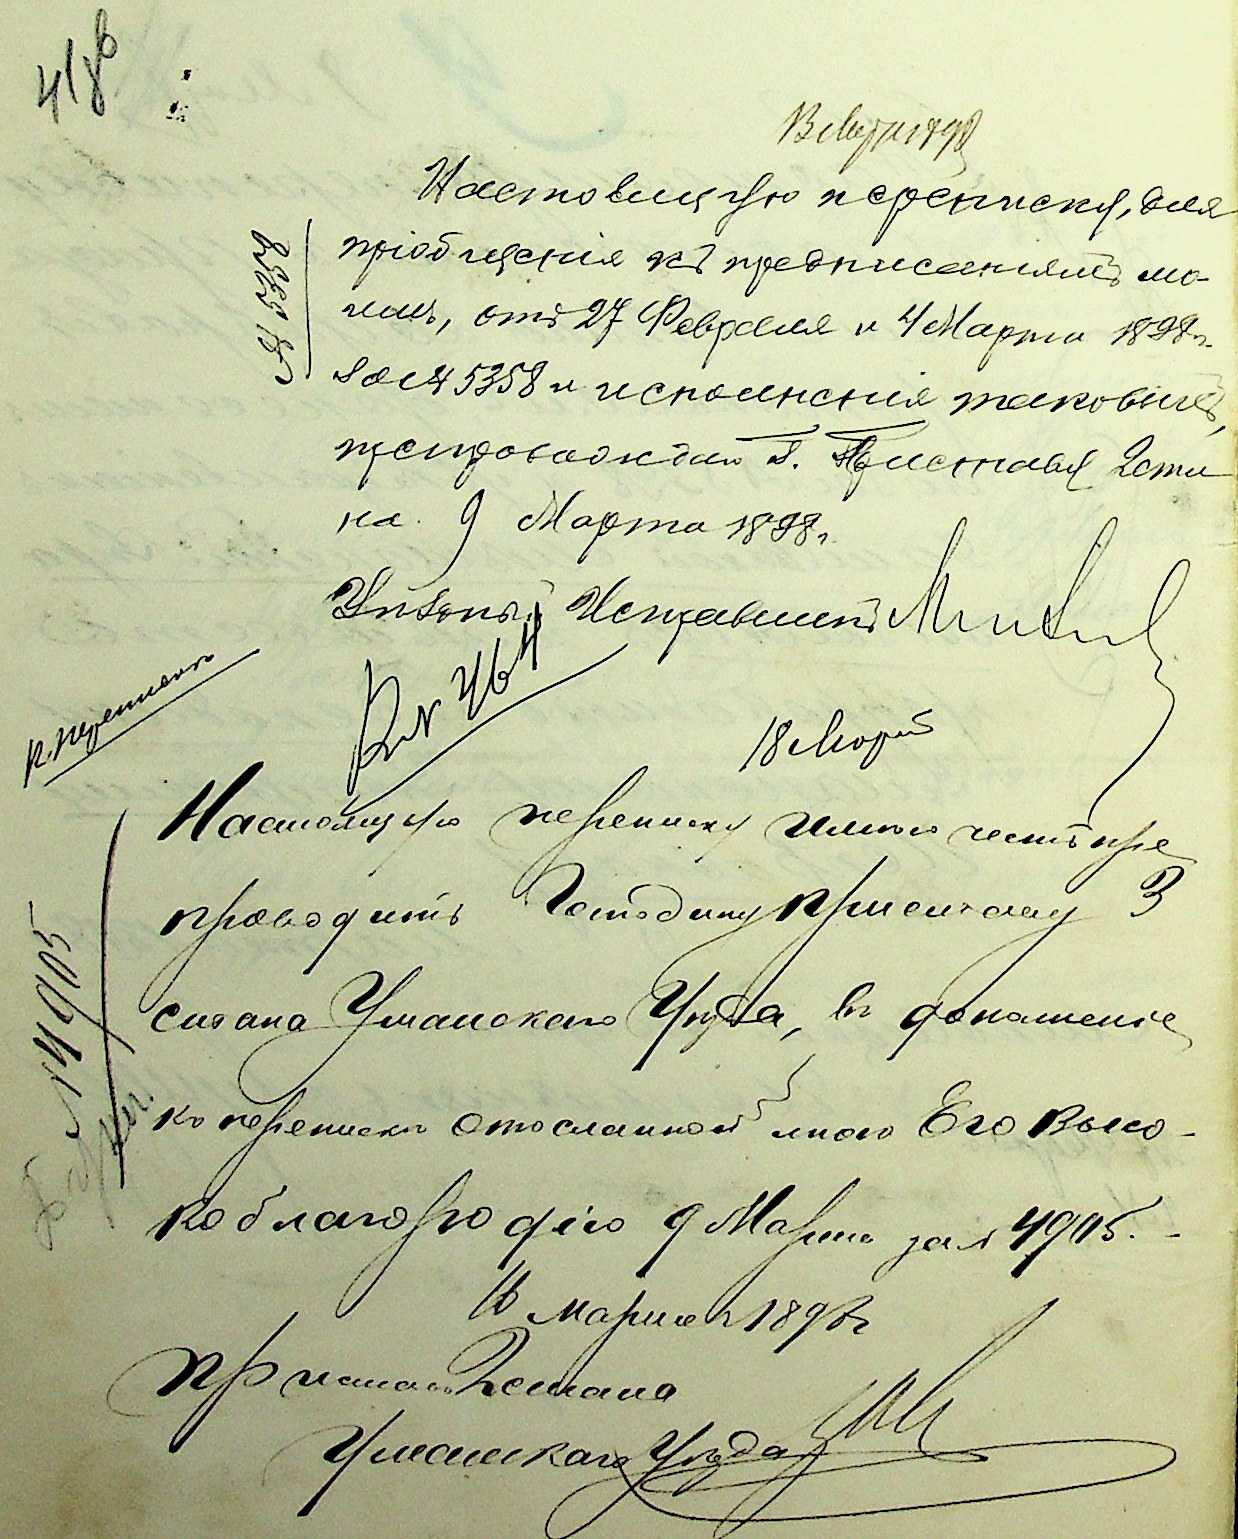 418
Настоящую переписку, для
пріобщенія къ предписаніямъ мо-
имъ, отъ 27 Февраля и 4 Марта 1898 г.
за № 5358 и исполненія таковыхъ,
препровождаю Г. Приставу 2 ста
на. 9 Марта 1898 г.
Уѣздный Исправникъ
№ 5358
Вх № 464
к. перепискѣ
18 Март
Настоящую переписку имѣю честь пре
проводить Господину Приставу 3
стана Уманскаго Уѣзда, въ дополненіе
къ перепискѣ отосланной мною Его Высо-
коблагородію 9 Марта за № 4905.-
16 марта 1898 г
Приставъ 2 стана
Уманскаго Уѣзда
№ 4905